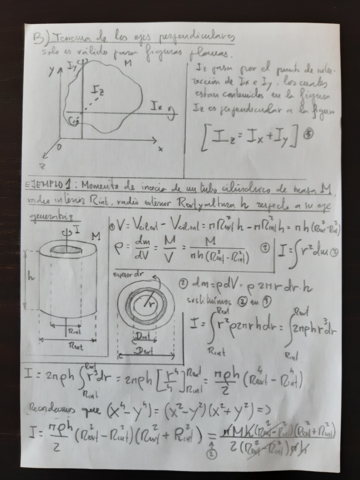 B) Teorema de los ejes perpendiculares
Solo es válido para figuras planas.
Y
Iy
M
Iz
Ix
G
0
x
z
Iz pasa por el punto de intersección de Ix e Iy. los cuales
están contenidos en la figura
Iz es perpendicular a la figura
[Iz = Ix + Iy] ⊛
EJEMPLO 1: Momento de inercia de un tubo cilíndrico de masa M,
radio interno Rint, radio externo Rext y altura h respecto a su eje
generatriz
V = Vcil.ext - Vcil.int = πRext²h - πRint²h = πh(Rext² - Rint²)
ρ = dm/dV = M/V = M/(πh(Rext² - Rint²)) ①
I = ∫r²dm ②
I
M
h
Rint
Rext
espesor dr
r
Dint
Dext
dm = ρdV = ρ2πr dr h
sustituimos en
I = ∫_{Rint}^{Rext} r²ρ2πrhdr = ∫_{Rint}^{Rext} 2πρhr³dr
I = 2πρh ∫_{Rint}^{Rext} r³dr = 2πρh [r⁴/4]_{Rint}^{Rext} = πρh/2 (Rext⁴ - Rint⁴)
Recordamos que (x⁴-y⁴) = (x²-y²)(x²+y²) =>
I = πρh/2 (Rext² - Rint²)(Rext² + Rint²) = πMh(Rext² - Rint²)(Rext² + Rint²)/2(Rext² - Rint²)πh
①